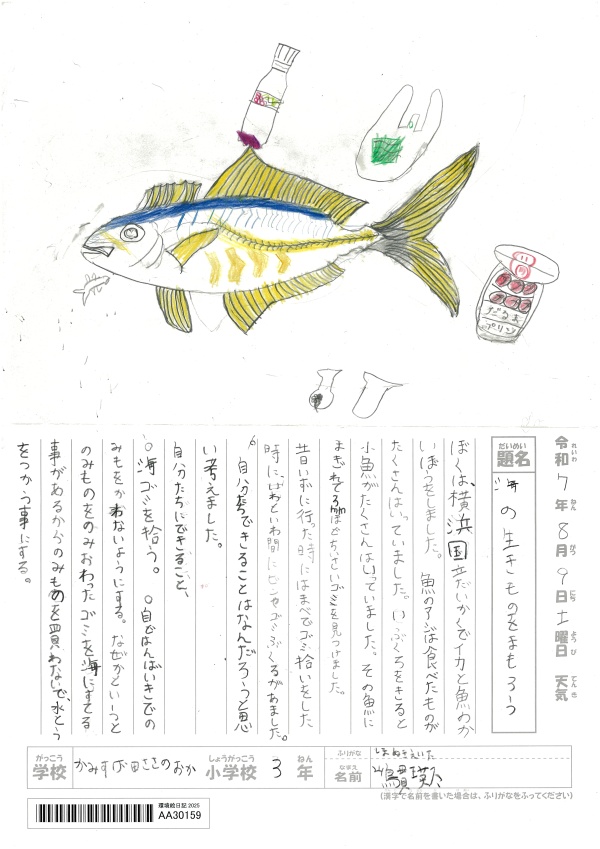 だるま
プリン
令和7年8月9日土曜日 天気
れいわ ねん がつ にち ようび てんき
だいめい
題名
海の生きものをまもろーう
ぼくは、横浜国立だいがくでイカと魚のか
いぼうをしました。魚のアジは食べたものが
たくさんはいっていました。いぶくろをきると
小魚がたくさんはいっていました。その魚に
まぎれて3mmほどちいさいゴミを見つけました。
昔いずに行った時にはまべでゴミ拾いをした
時にいわといわ間にビンやゴミぶくろがありました。
自分達でできることはなんだろうと思
い考えました。
自分たちにできること、
○海ゴミを拾う。 ○自どはんばいきでの
みもをかわないようにする。なぜかといーうと
のみものをのみおわったゴミを海にすてる
事があるからのみものを買わないで、水とう
をつかう事にする。
がっこう
学校
かみすげ田ささのおか
しょうがっこう
小学校
3
ねん
年
ふりがな
なまえ
名前
(漢字で名前を書いた場合は、ふりがなをふってください)
環境絵日記 2025
AA30159